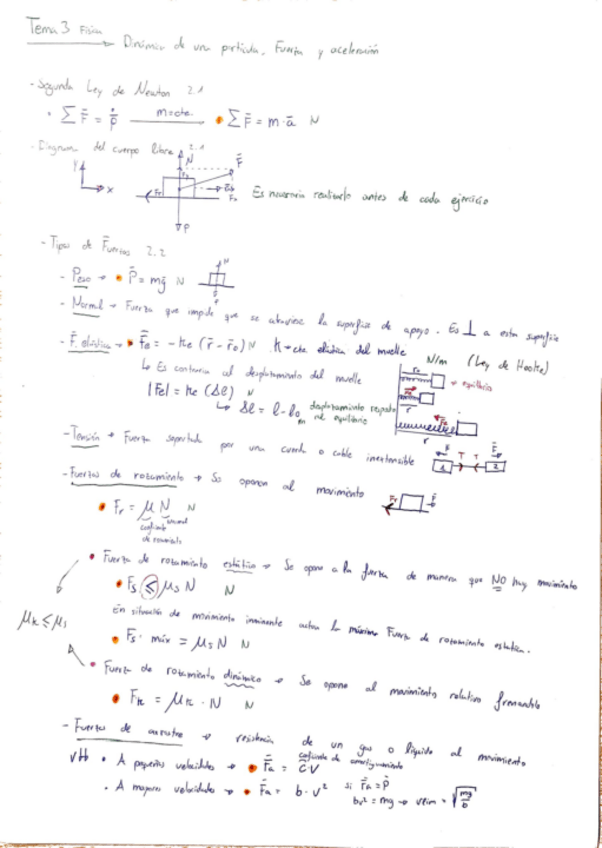 Tema 3 Física
Dinámica de una partícula. Fuerza y aceleración
- Segunda Ley de Newton 2.1
• ∑ F̄ = ṗ m=cte. → • ∑ F̄ = m·ā N
- Diagrama del cuerpo libre 2.1
Y N F̄
x Fr Fx
P
Es necesario realizarlo antes de cada ejercicio
- Tipos de Fuerzas 2.2
- Peso → • P̄ = mḡ N
- Normal → Fuerza que impide que se atraviese la superficie de apoyo. Es ⊥ a esta superficie
- F. elástica → • F̄e = -ke (r̄ - r̄o) N K → cte elástica del muelle N/m (Ley de Hooke)
↳ Es contraria al desplazamiento del muelle
→ equilibrio
|Fe| = ke (Δl) N
↳ Δl = l - lo desplazamiento respecto en el equilibrio
- Tensión → Fuerza soportada por una cuerda o cable inextensible
1 T T 2
- Fuerzas de rozamiento → Se oponen al movimiento
• Fr = μ N N
coeficiente normal
de rozamiento
• Fuerza de rozamiento estático → Se opone a la fuerza de manera que NO hay movimiento
• Fs ≤ μs N N
μk ≤ μs
En situación de movimiento inminente actúa la máxima Fuerza de rozamiento estática.
• Fs. máx = μs N N
• Fuerza de rozamiento dinámico → Se opone al movimiento relativo frenandole
• Fk = μk · N N
- Fuerzas de arrastre → resistencia de un gas o líquido al movimiento
• A pequeñas velocidades → • F̄a = C V
coeficiente de amortiguamiento
• A mayores velocidades → • F̄a = b · v² si F̄a = P̄
bv² = mg → vlim = √mg/b